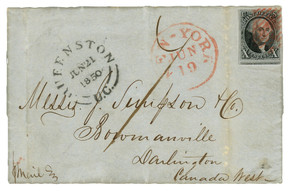 QUEENSTON
JUN 21
1850
U.C.
NEW-YORK
JUN
19
Messrs J. Simpson & Co.
Bowmanville
Darlington
Canada West